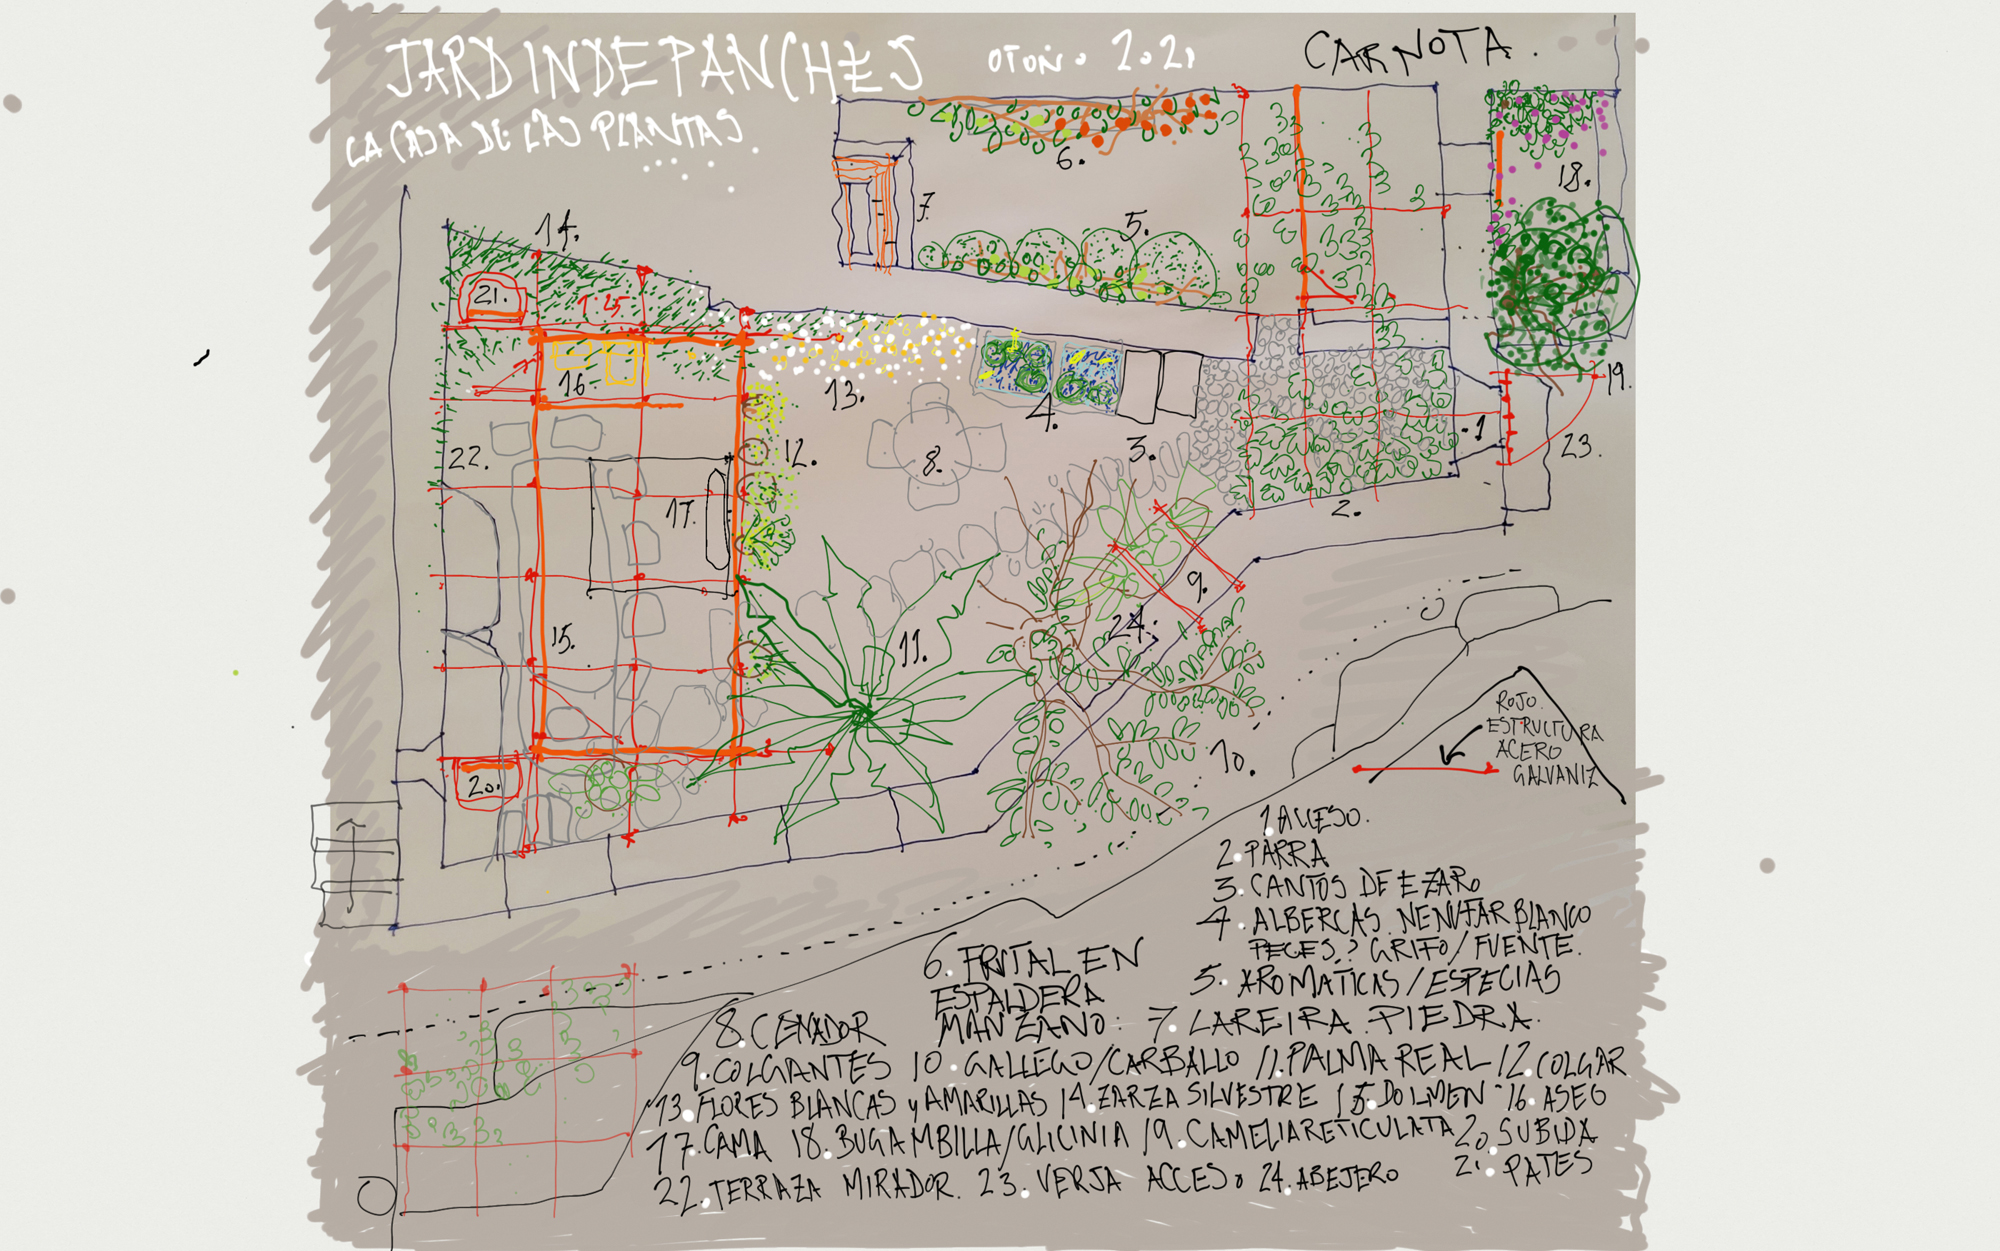 JARDINDEPANCHES
OTOÑO 2021
CARNOTA.
LA CASA DE LAS PLANTAS
6.
18.
7.
5.
14.
21.
16
13.
4.
19.
1
23.
22.
12.
8.
3.
17.
2.
9.
24.
15.
11.
10.
20.
ROJO
ESTRUCTURA
ACERO
GALVANIZ
1 ACCESO.
2 PARRA
3. CANTOS DE EZARO
4. ALBERCAS. NENUFAR BLANCO
PECES? GRIFO/FUENTE.
5. AROMATICAS/ESPECIAS
6. FRUTAL EN
ESPALDERA
MANZANO.
7 LAREIRA PIEDRA.
8. CENADOR
9. COLGANTES 10. GALLEGO/CARBALLO 11. PALMA REAL 12 COLGAR
13. FLORES BLANCAS y AMARILLAS 14. ZARZA SILVESTRE 15. DOLMEN 16. ASEO
17. CAMA 18. BUGAMBILLA/GLICINIA 19. CAMELIA RETICULATA 20. SUBIDA
21. PATES
22. TERRAZA MIRADOR. 23. VERJA ACCESO 24. ABEJERO